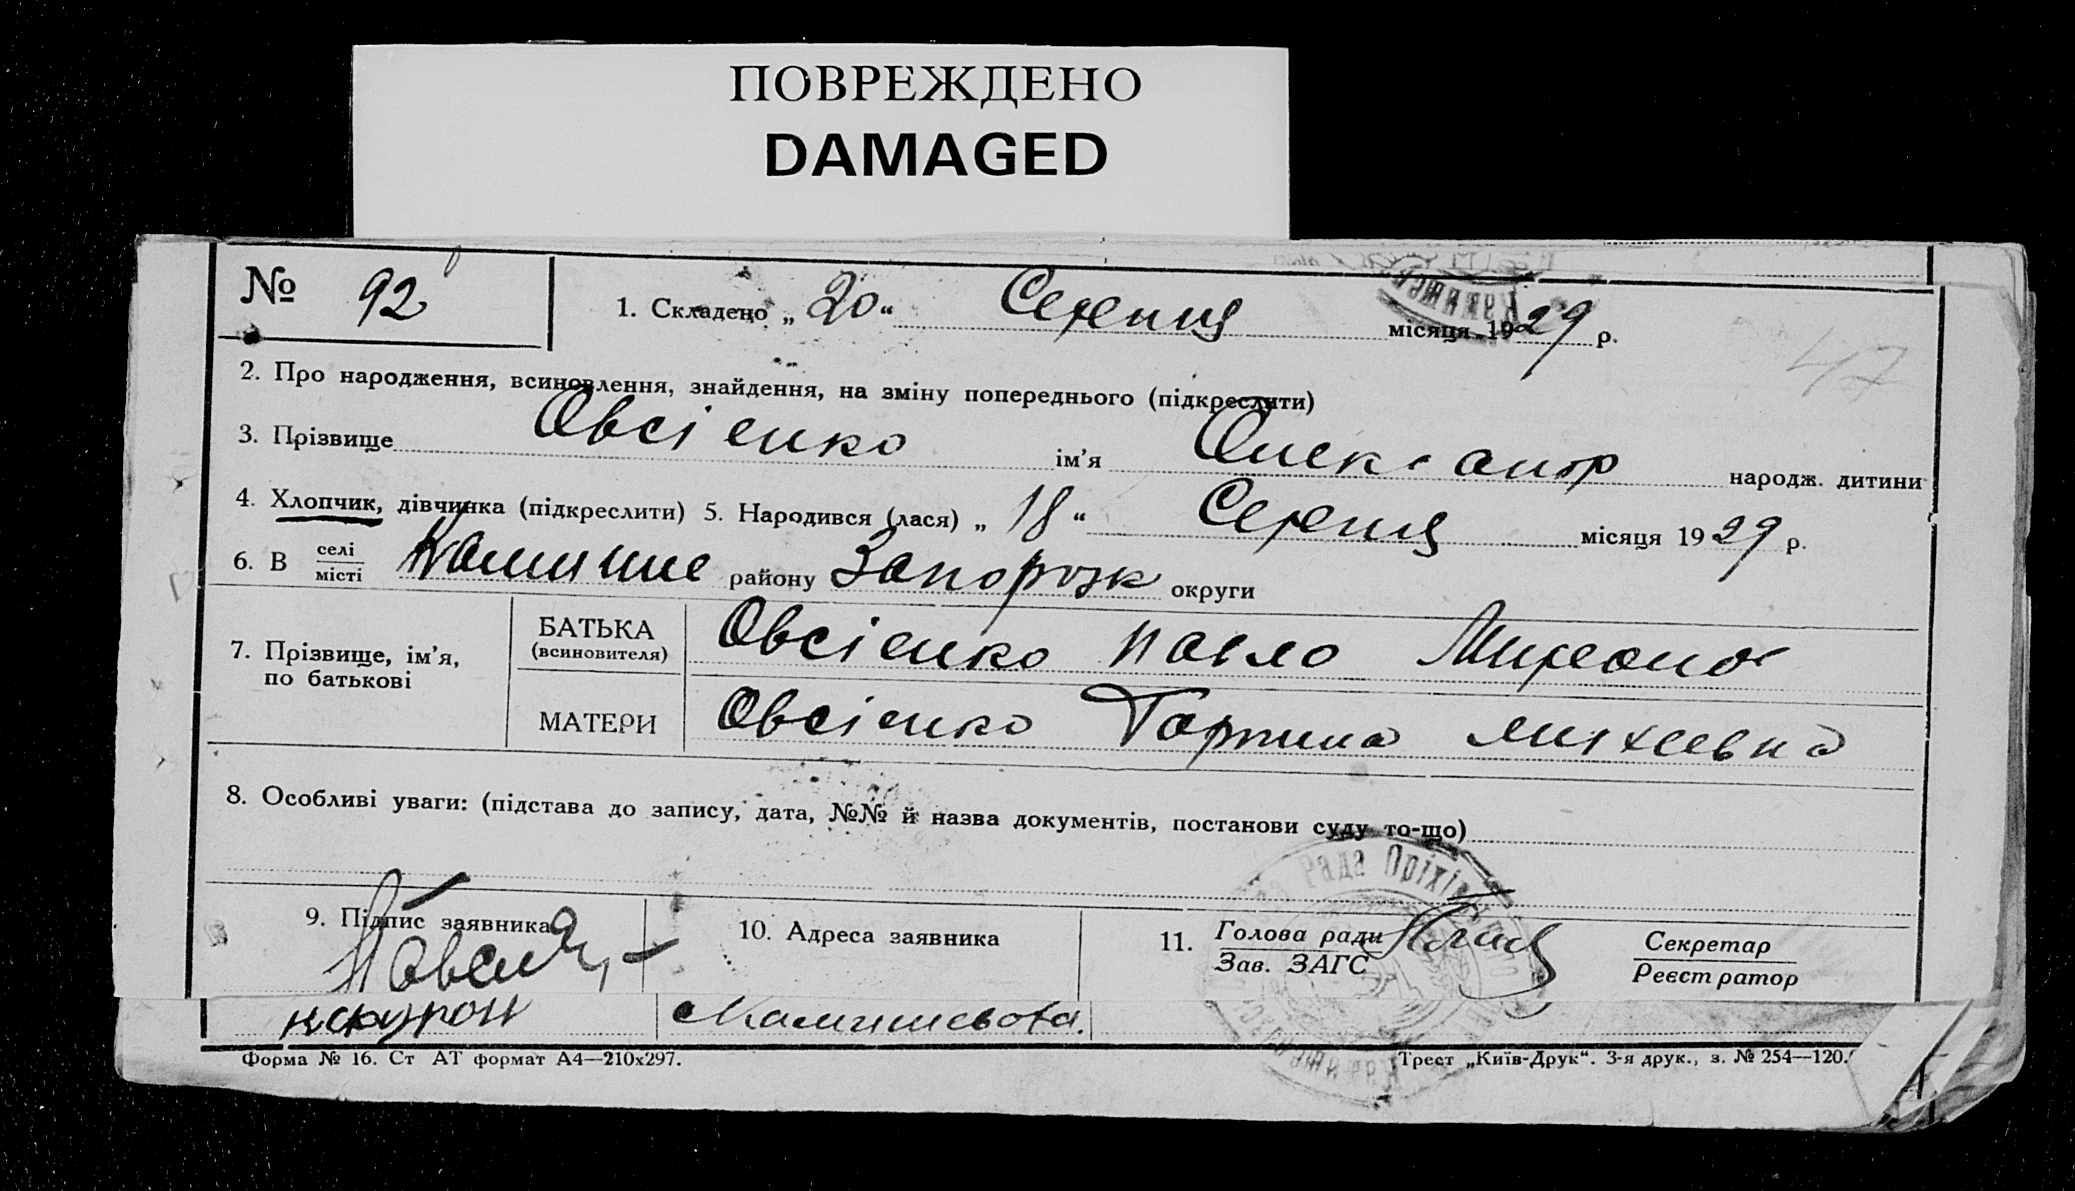 ПОВРЕЖДЕНО
DAMAGED
№ 92
1. Складено „ 20 “ Серпня місяця 1929 р.
47
2. Про народження, всиновлення, знайдення, на зміну попереднього (підкреслити)
3. Прізвище Овсієнко ім’я Олександр народж. дитини
4. Хлопчик, дівчинка (підкреслити) 5. Народився (лася) „ 18 “ Серпня місяця 1929 р.
6. В селі місті району Запорізк округи
7. Прізвище, ім’я, по батькові
БАТЬКА (всиновителя) Овсієнко Павло
МАТЕРИ Овсієнко
8. Особливі уваги: (підстава до запису, дата, №№ й назва документів, постанови суду то-що)
9. Підпис заявника
10. Адреса заявника
11. Голова ради Зав. ЗАГС
Секретар Реєстратор
Рада Оріхі
Форма № 16. Ст АТ формат А4—210х297.
Трест „Київ-Друк“. 3-я друк., з. № 254—120.